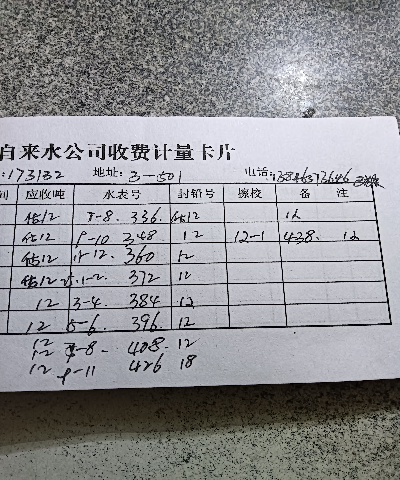 自来水公司收费计量卡片
:173132 地址: 3-501 电话:
应收吨 水表号 封铅号 撤校 备 注
估12 7-8. 336. 估12 12
估12 9-10 348 12 12-1 438. 12
估12 11-12. 360 12
估12 1-2. 372 12
12 3-4. 384 12
12 5-6. 396. 12
12 7-8. 408. 12
12 9-11 426 18